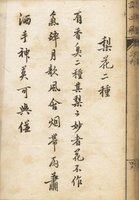 梨花二種
有香臭二種其梨之妙者花不作
氣醉月欹風含烟帶雨蕭
洒丰神莫可與